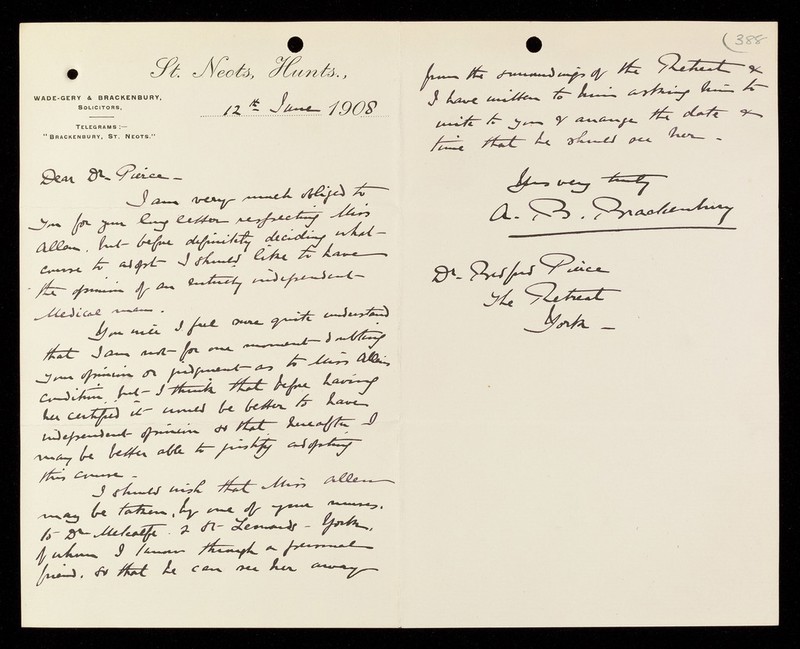 St. Neots, Hunts.,
WADE-GERY & BRACKENBURY,
SOLICITORS,
TELEGRAMS:—
"BRACKENBURY, ST. NEOTS."
12th June 1908
Dear Dr Pierce –
I am very much obliged to
you for your long letter respecting Miss
Allen, but before definitely deciding what
course to adopt I should like to have
the opinion of an entirely independent
Medical man.
You will I feel sure quite understand
that I am not for one moment doubting
your opinion or judgment as to Miss Allen's
condition, but I think that before having
her certified it would be better to have
independent opinion so that hereafter I
may be better able to justify adopting
this course –
I should wish that Miss Allen
may be taken, by one of your nurses,
to Dr Metcalfe 2 St Leonards – York,
of whom I know through a personal
friend, so that he can see her away
388
from the surroundings of the Retreat &
I have written to him asking him to
write to you & arrange the date &
time that he should see her –
Yours very truly
A. B. Brackenbury
Dr Bedford Pierce
The Retreat
York –